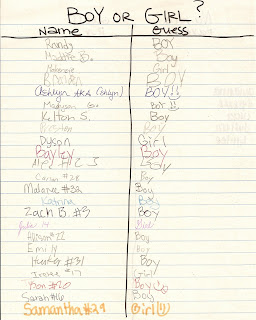 BOY OR GIRL?
Name Guess
Randy Boy
Maddie B. Boy
Makenzie Girl
Boy
Ashlyn AKA (Ashlyn) Boy!!
Madyson Boy
Kelton S. Boy
Preston Boy
Dyson Girl
Bayley Boy
Alec #23 Boy
Carson #28 Boy
Malorie #32 Boy
Katrina Boy
Zach B. #3 Boy
Julia 14
Allison #22 Boy
Emi Boy
#31 Boy
#17 Girl
#20 Boy
Sarah #16 Boy
Samantha #24 Girl!!